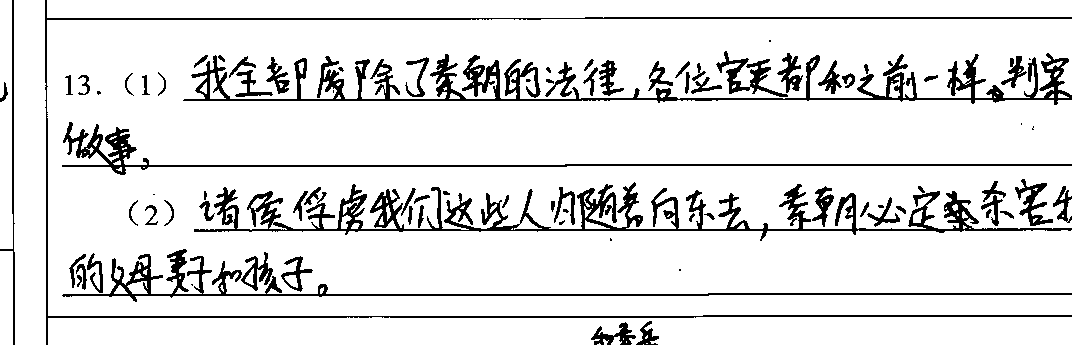 13.（1）我全部废除了秦朝的法律,各位官吏都和之前一样。判案
做事。
（2）诸侯俘虏我们这些人随着向东去,秦朝必定杀害我
的父母妻子和孩子。